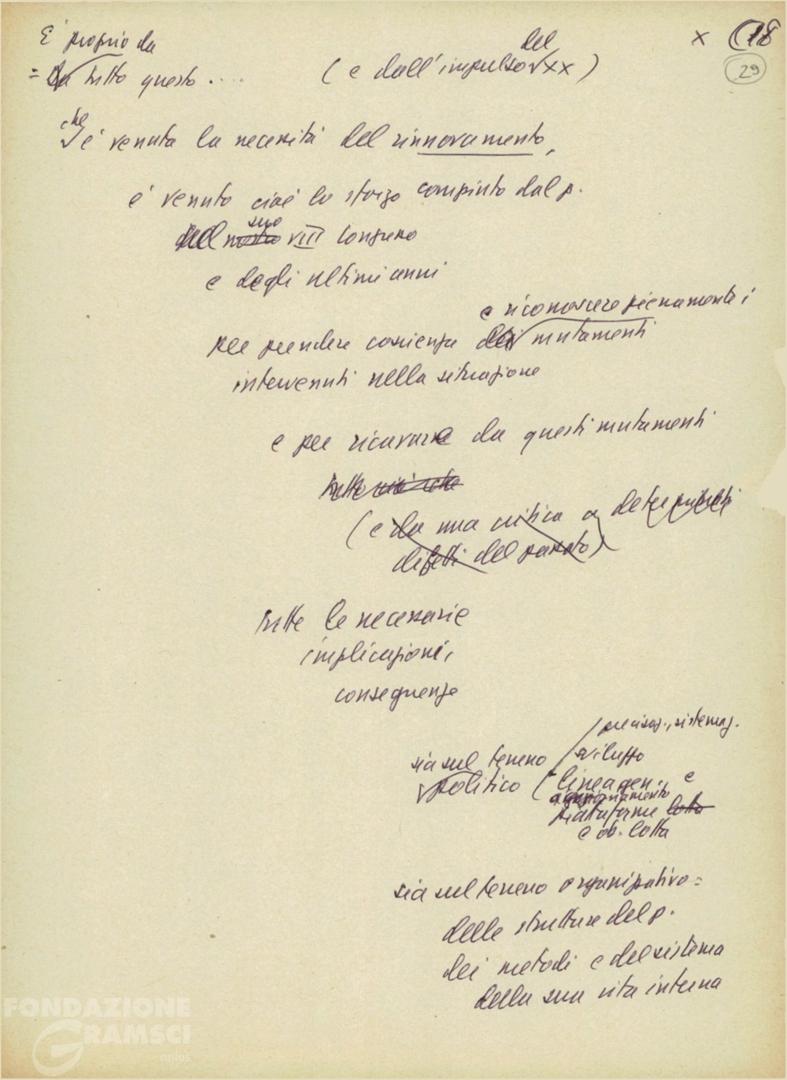 È proprio da
= Da tutto questo .... (e dall'impulso del XX) × 18
29
che è venuta la necessità del rinnovamento,
è venuto cioè lo sforzo compiuto dal p.
del nostro suo VIII Congresso
e degli ultimi anni
e riconoscere pienamente i
per prendere coscienza dei mutamenti
intervenuti nella situazione
e per ricavare da questi mutamenti
tutto
(e da una critica a determinati
difetti del passato)
tutte le necessarie
implicazioni,
conseguenze
precisaz., sistemaz.
sia sul terreno sviluppo
politico (linea gen. e
aggiornamento
piattaforme lotta
e ob. lotta
sia sul terreno organizzativo =
delle strutture del p.
dei metodi e del sistema
della sua vita interna
FONDAZIONE
GRAMSCI
onlus